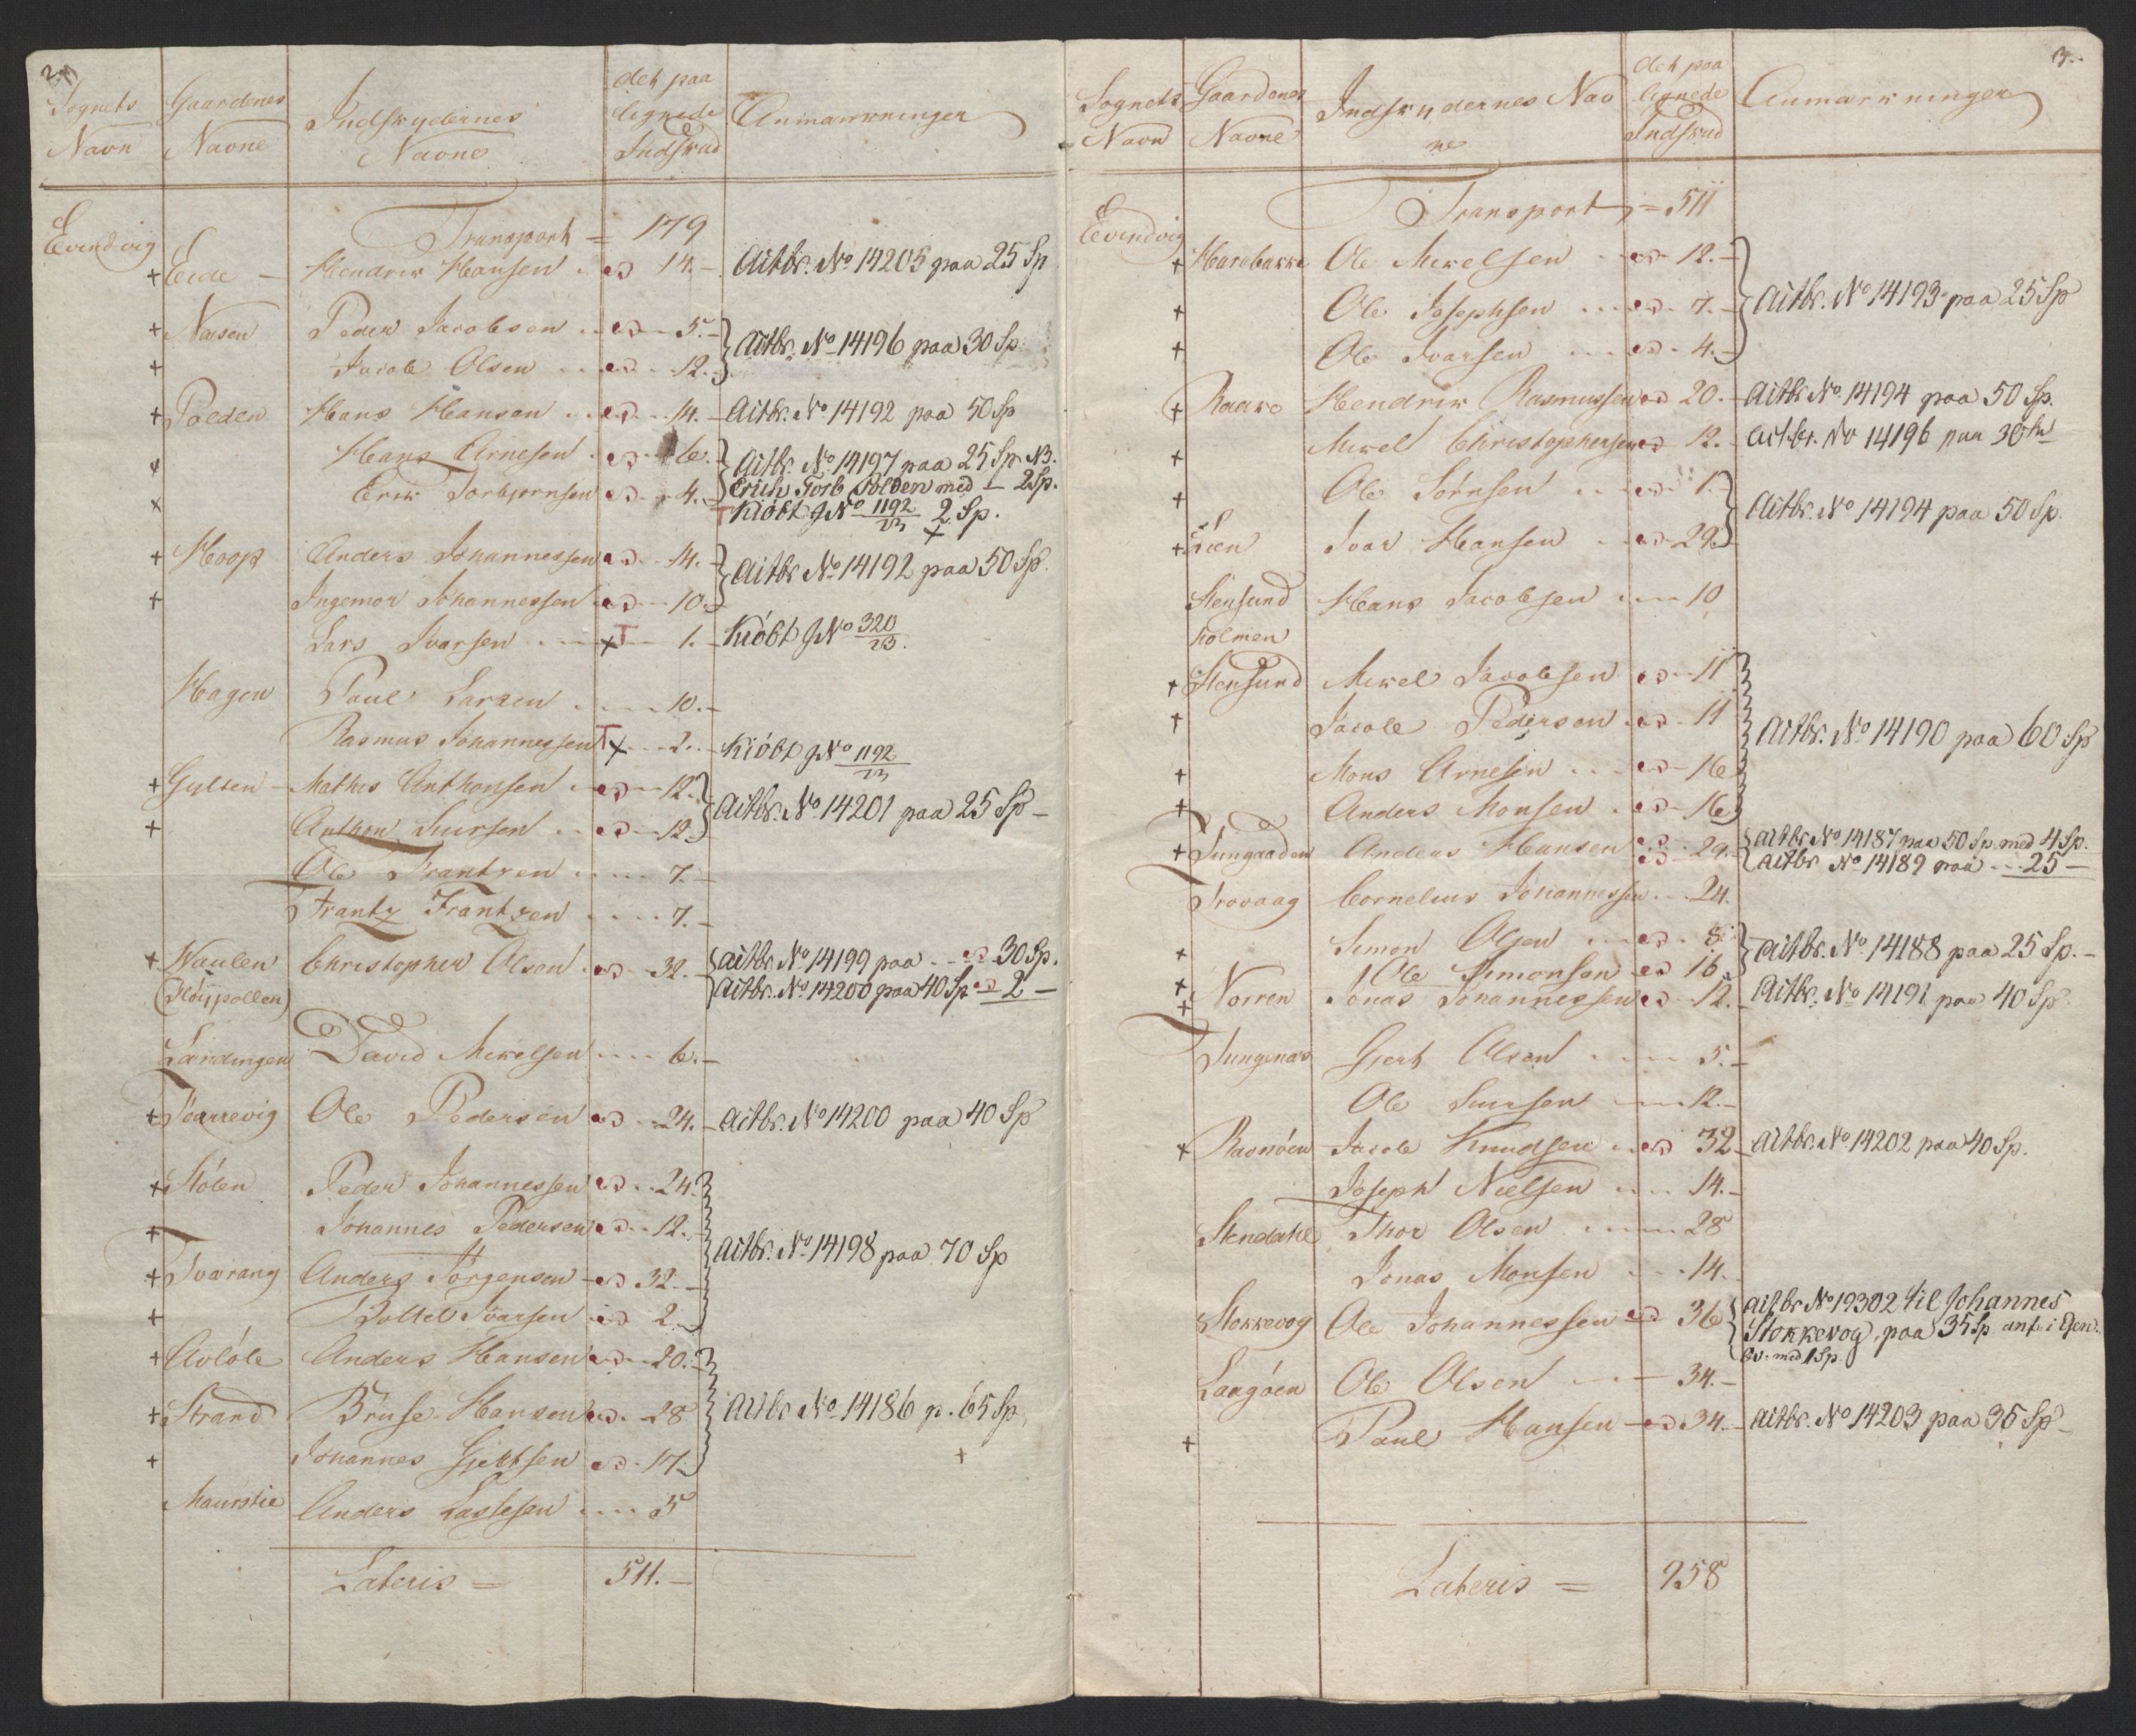 2.
Sognets Navn
Gaardenes Navne
Indskydernes Navne
det paa lignede Indskud
Anmærkninger
Evindvig
Transport = 179
+ Eide - Hendrik Hansen 14. - Actbr. No 14205 paa 25 Sp
+ Næsen Peder Jacobsen 5. -
+ Jacob Olsen 12. Actbr. No 14196 paa 30 Sp.
+ Polden Hans Hansen 14. - Actbr. No 14192 paa 50 Sp
+ Hans Arnesen 6. - Actbr. No 14197 paa 25 Sp. NB.
x Erik Torbjørnsen 4. - Erich Torb. Polden med - 2 Sp.
Kiöbt gNo 1192/23 2 Sp. +
+ Hoop Anders Johannessen 14. -
+ Ingemor Johannessen 10. - Actbr No 14192 paa 50 Sp.
Lars Ivarsen x T 1. - Kiöbt gNo 320/23.
Hagen Paul Larsen 10. -
Rasmus Johannessen T x 2. - Kiöbt gNo 1192/23
+ Gylten - Mathis Anthonsen 12.
+ Anthon Siursen 12. Actbr. No 14201 paa 25 Sp -
Ole Frantzen 7. -
Frantz Frantzen 7. -
+ Waulen Christopher Olsen 32. - Actbr. No 14199 paa 30 Sp.
(Höypollen) Actbr. No 14200 paa 40 Sp 2 -
Landingen David Mikelsen 6. -
+ Ole Pedersen 24. - Actbr. No 14200 paa 40 Sp
+ Stölen Peder Johannessen 24.
+ Johannes Pedersen 12. - Actbr. No 14198 paa 70 Sp
+ Tværang Anders Jörgensen 32. -
+ Boltel Ivarsen 2. -
+ Avlöle Anders Hansen 20. -
+ Strand Bruse Hansen 28 Actbr No 14186 p. 65 Sp.
+ Johannes Gjertsen 17. - +
Maurstie Anders Lassesen 5
Lateris = 511. -
3.
Sognets Navn
Gaardenes Navne
Indskydernes Navne
det paa lignede Indskud
Anmærkninger
Evindvig
Transport = 511
+ Harebakke Ole Mikelsen 12. -
+ Ole Josephsen 7. - Actbr. No 14193 paa 25 Sp
+ Ole Ivarsen 4. -
+ Raake Hendrik Rasmussen 20. - Actbr No. 14194 paa 50 Sp.
+ Mikel Christophersen 12. - Actbr. No 14196 paa 30
+ Ole Sörnsen 1. -
+ Lien Ivar Hansen 29. Actbr. No 14194 paa 50 Sp.
Stensund Hans Jacobsen 10
holmen
+ Stensund Mikel Jacobsen 11
+ Jacob Pedersen 11 Actbr. No 14190 paa 60 Sp
+ Mons Arnesen 16
+ Anders Monsen 16
+ Tungaaden Anders Hansen 29. - Actbr No 14187 paa 50 Sp. med 4 Sp.
Actbr No 14189 paa 25 -
Trovaag Cornelius Johannessen 24.
+ Simon Olsen 8
+ Ole Simonsen 16 Actbr. No. 14188 paa 25 Sp. -
+ Norren Jonas Johannessen 12. - Actbr. No 14191 paa 40 Sp.
Tungenæs Gjert Olsen 5. -
Ole Siursen 12. -
+ Rasnöen Jacob Knudsen 32 - Actbr. No 14202 paa 40 Sp.
Joseph Nielsen 14. -
Stendahl Thor Olsen 28
Jonas Monsen 14. -
Stokkevog Ole Johannessen 36 Actbr No 19302 til Johannes
Stokkevog, paa 35 Sp anf. i Ejen.
br. med 1 Sp.
Laagöen Ole Olsen 34. -
+ Paul Hansen 34. - Actbr. No 14203 paa 35 Sp -
Lateris = 958